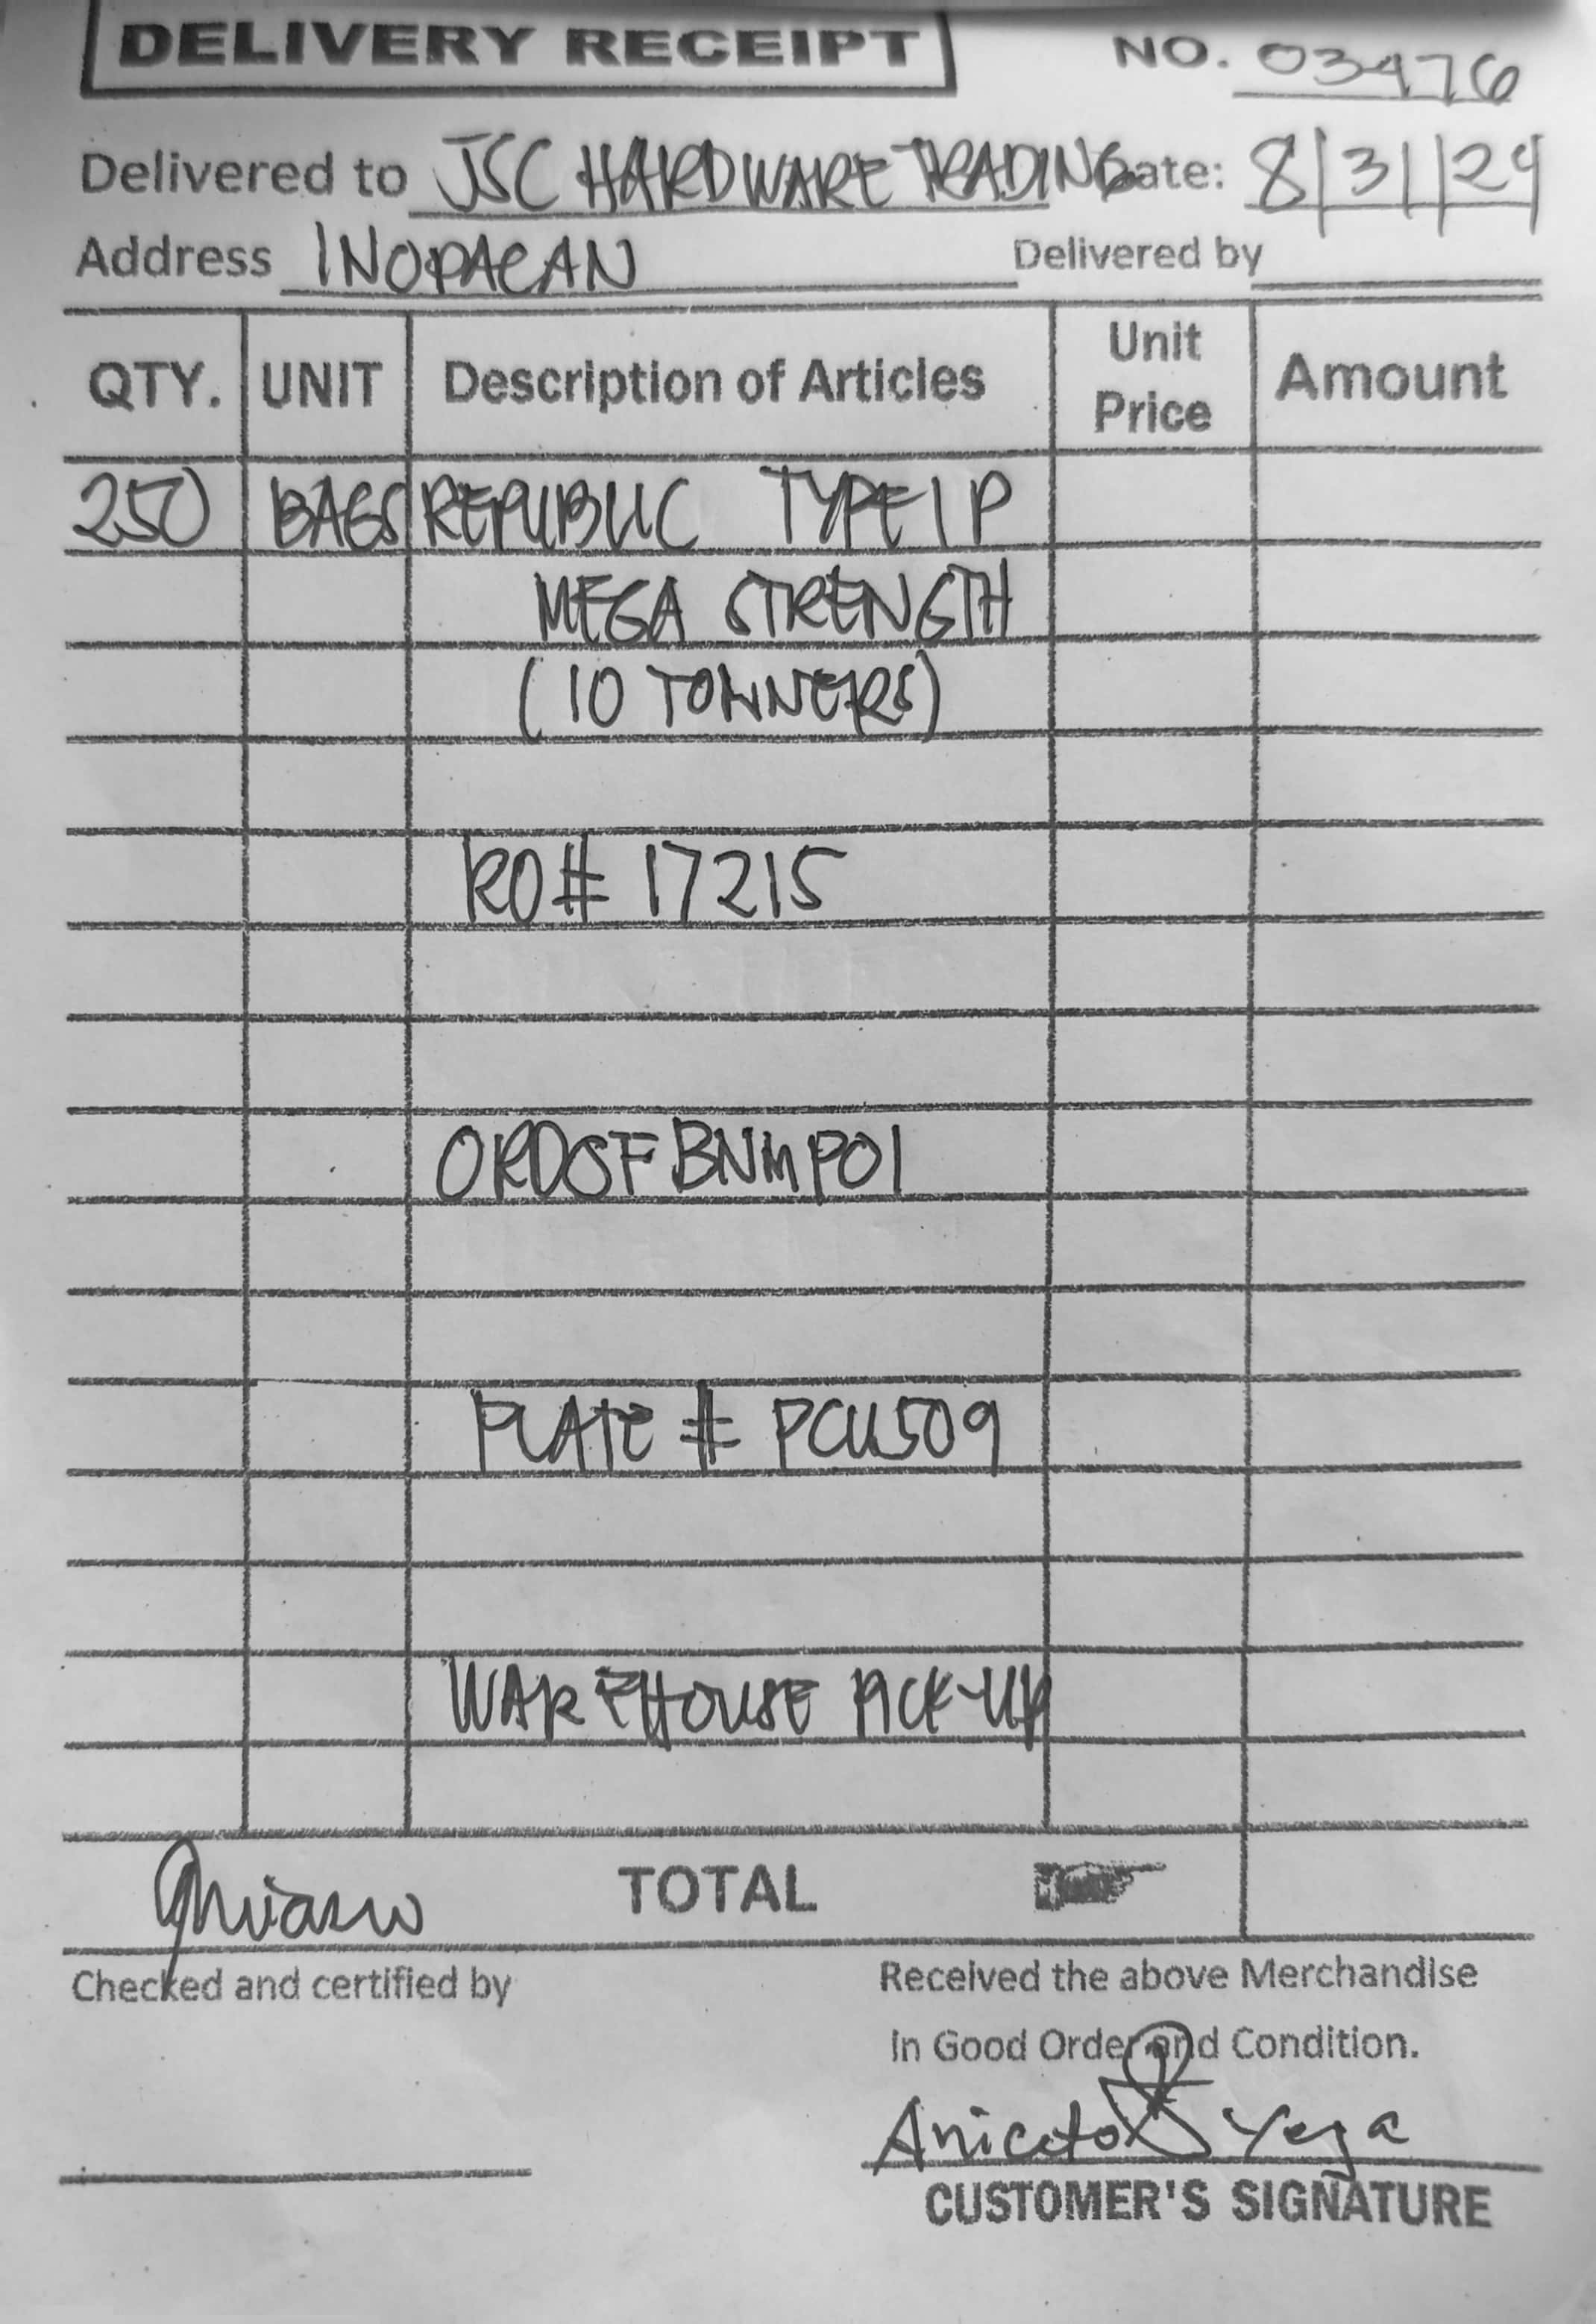 DELIVERY RECEIPT NO. 03476
Delivered to JSC HARDWARE TRADING Date: 8/31/24
Address INOPACAN Delivered by
QTY. UNIT Description of Articles Unit Price Amount
250 BAGS REPUBLIC TYPE 1P
MEGA STRENGTH
(10 TONNERS)
RO# 17215
ORDSFBNMP01
PLATE # PCU509
WAREHOUSE PICK-UP
TOTAL
Checked and certified by
Received the above Merchandise
In Good Order and Condition.
Aniceto Yega
CUSTOMER'S SIGNATURE